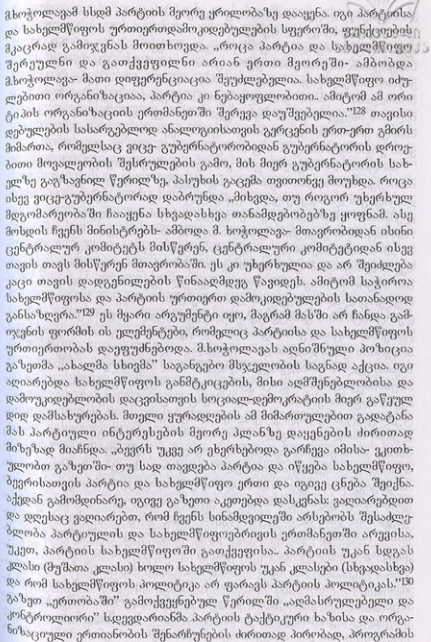 მ.ხოჭოლავამ სსდმ პარტიის მეორე ყრილობაზე დააყენა. იგი პარტიისა
და სახელმწიფოს ურთიერთდამოკიდებულების სფეროში, ფუნქციების
მკაცრად გამიჯვნას მოითხოვდა. „როცა პარტია და სახელმწიფო
შერეულნი და გათქვეფილნი არიან ერთი მეორეში- ამბობდა
მ.ხოჭოლავა- მათი დიფერენციაცია შეუძლებელია. სახელმწიფო იძუ-
ლებითი ორგანიზაციაა, პარტია კი ნებაყოფლობითი.. ამიტომ ამ ორი
ტიპის ორგანიზაციის ერთმანეთში შერევა დაუშვებელია."128 თავისი
დებულების სასარგებლოდ ანალოგიისათვის გერცენის ერთ-ერთ გმირს
მიმართა, რომელსაც ვიცე-გუბერნატორობიდან გუბერნატორის დროე-
ბითი მოვალეობის შესრულების გამო, მის მიერ გუბერნატორის სახ-
ელზე გაგზავნილ წერილზე, პასუხის გაცემა თვითონვე მოუხდა. როცა
ისევ ვიცე-გუბერნატორად დაბრუნდა „მიხვდა, თუ როგორ უხერხულ
მდგომარეობაში ჩააყენა სხვადასხვა თანამდებობებზე ყოფნამ. ასე
მოსდის ჩვენს მინისტრებს- ამბობდა მ. ხოჭოლავა- მთავრობიდან ისინი
ცენტრალურ კომიტეტს მისწერენ, ცენტრალური კომიტეტიდან ისევ
თავის თავს მისწერენ მთავრობაში. ეს კი უხერხულია და არ შეიძლება
კაცი თავის დადგენილების წინააღმდეგ წავიდეს. ამიტომ საჭიროა
სახელმწიფოსა და პარტიის ურთიერთ დამოკიდებულების სათანადოდ
განსაზღვრა."129 ეს მყარი არგუმენტი იყო, მაგრამ მასში არ ჩანდა გამ-
იჯვნის ფორმის ის ელემენტები, რომელიც პარტიისა და სახელმწიფოს
ურთიერთობას დაეფუძნებოდა. მ.ხოჭოლავას აღნიშნული პოზიცია
გაზეთმა „ახალმა სხივმა" საგანგებო მსჯელობის საგნად აქცია. იგი
აღიარებდა სახელმწიფოს განმტკიცების, მისი აღმშენებლობისა და
დამოუკიდებლობის დაცვისათვის სოციალ-დემოკრატიის მიერ გაწეულ
დიდ დამსახურებას. მთელი ყურადღების ამ მიმართულებით გადატანა
მას პარტიული ინტერესების მეორე პლანზე დაყენების ძირითად
მიზეზად მიაჩნდა. „ბევრს უკვე არ ეხერხებოდა გარჩევა იმისა- ვკითხ-
ულობთ გაზეთში- თუ სად თავდება პარტია და იწყება სახელმწიფო,
ბევრისათვის პარტია და სახელმწიფო ერთი და იგივე ცნება შეიქნა.
აქედან გამომდინარე, იგივე გაზეთი აკეთებდა დასკვნას: ვაღიარებდით
და დღესაც ვაღიარებთ, რომ ჩვენს სინამდვილეში არსებობს შესაძლე-
ბლობა პარტიულის და სახელმწიფოებრივის ერთმანეთში არევისა,
უკეთ, პარტიის სახელმწიფოში გათქვეფისა.. პარტიის უკან სდგას
კლასი (მუშათა კლასი) ხოლო სახელმწიფოს უკან კლასები (სხვადასხვა)
და რომ სახელმწიფოს პოლიტიკა არ ფარავს პარტიის პოლიტიკას."130
გაზეთ „ერთობაში" გამოქვეყნებულ წერილში „აღმასრულებელი და
კონტროლიორი" ს.დევდარიანმა პარტიის ტაქტიკური ხაზისა და ორგა-
ნიზაციული ერთიანობის შენარჩუნების ძირითად პირობად, პროგრამის